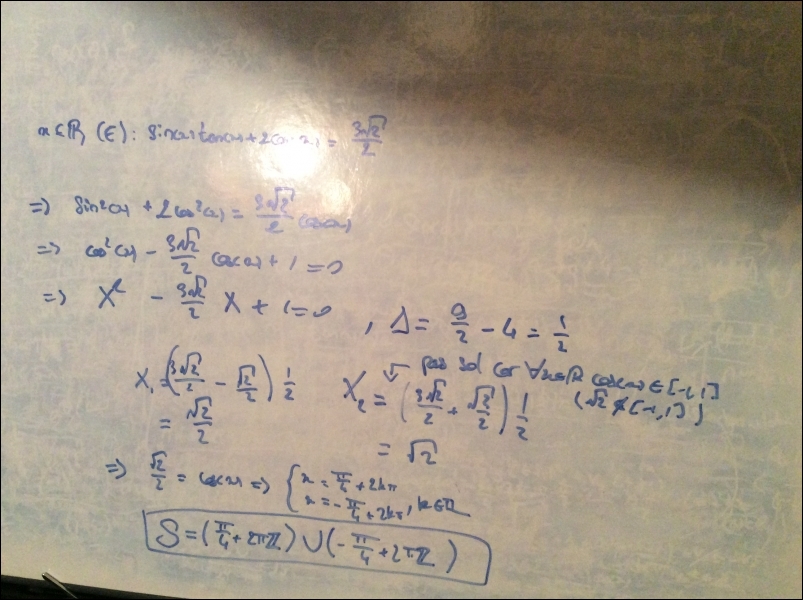 x∈ℝ, (E): sin(x)tan(x)+2cos(x) = 3√2/2
=> sin²(x) + 2cos²(x) = 3√2/2 cos(x)
=> cos²(x) - 3√2/2 cos(x) + 1 = 0
=> X² - 3√2/2 X + 1 = 0 , Δ = 9/2 - 4 = 1/2
X₁ = (3√2/2 - √2/2) 1/2
= √2/2
pas sol car ∀x∈ℝ cos(x) ∈ [-1,1]
(√2 ∉ [-1,1])
X₂ = (3√2/2 + √2/2) 1/2
= √2
=> √2/2 = cos(x) => { x = π/4 + 2kπ
x = -π/4 + 2kπ, k∈ℤ
S = (π/4 + 2πℤ) ∪ (-π/4 + 2πℤ)